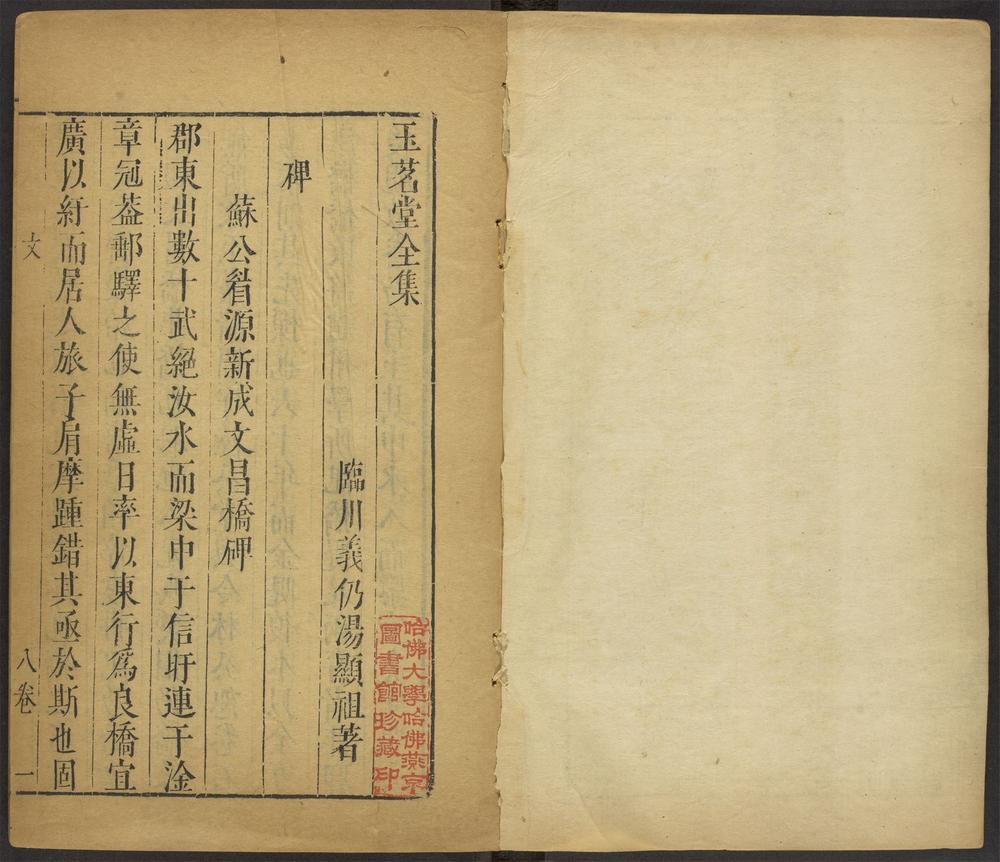 玉茗堂全集
臨川義仍湯顯祖著
碑
蘇公眉源新成文昌橋碑
郡東出數十武絕汝水而梁中于信盱連于淦
章冠葢郵驛之使無虛日率以東行爲良橋宜
廣以紆而居人旅子肩摩踵錯其亟於斯也固
文
八卷
一
哈佛大學哈佛燕京
圖書館珍藏印